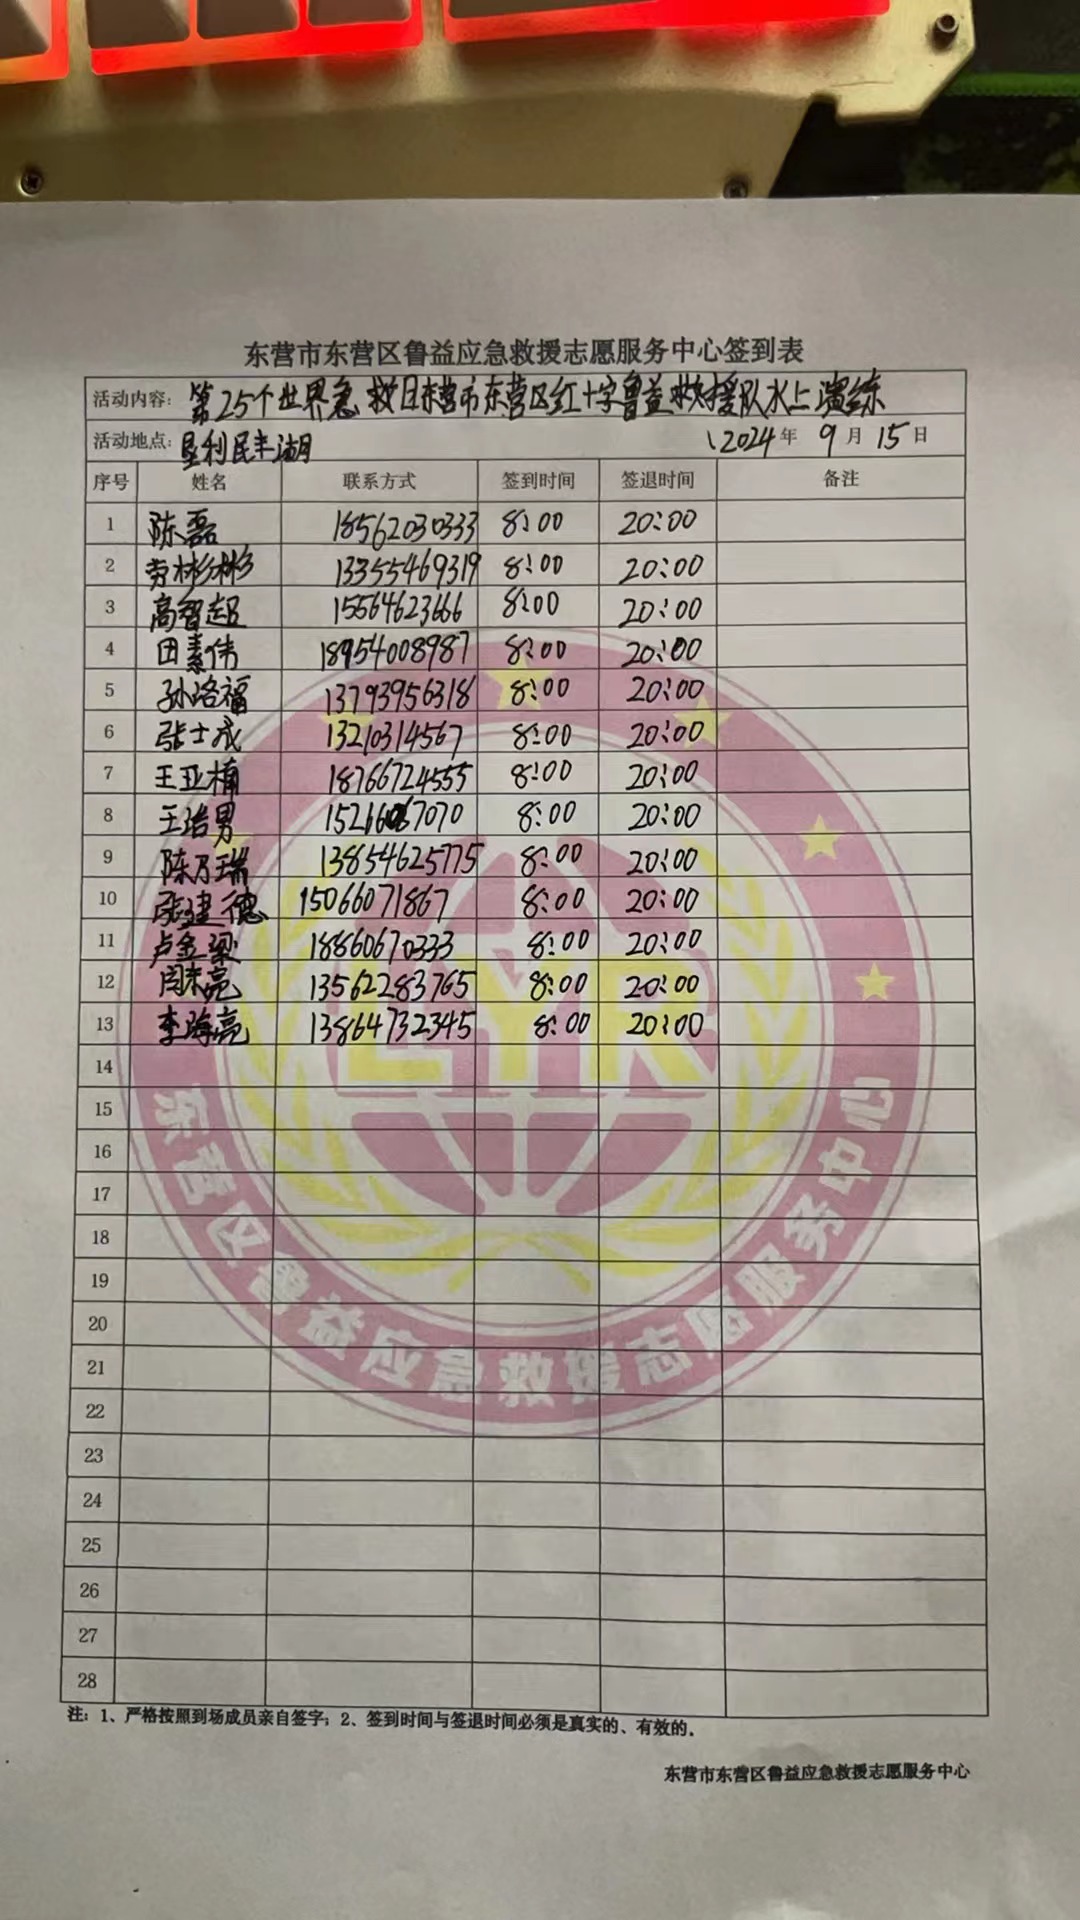 东营市东营区鲁益应急救援志愿服务中心签到表
活动内容: 第25个世界急救日东营市东营区红十字鲁益救援队水上演练
活动地点: 垦利民丰湖 2024年 9月 15日
序号 姓名 联系方式 签到时间 签退时间 备注
1 陈磊 18562030333 8:00 20:00
2 劳彬彬 13355469319 8:00 20:00
3 高智超 15564623666 8:00 20:00
4 田素伟 18954008987 8:00 20:00
5 孙洛福 13793956318 8:00 20:00
6 张士成 13210314567 8:00 20:00
7 王亚楠 18766724555 8:00 20:00
8 王浩男 8:00 20:00
9 陈乃瑞 13854625775 8:00 20:00
10 张建德 15066071867 8:00 20:00
11 卢金梁 18860670333 8:00 20:00
12 闫来亮 13562283765 8:00 20:00
13 李海亮 13864732345 8:00 20:00
14
15
16
17
18
19
20
21
22
23
24
25
26
27
28
LYR
东营区鲁益应急救援志愿服务中心
注: 1、严格按照到场成员亲自签字; 2、签到时间与签退时间必须是真实的、有效的。
东营市东营区鲁益应急救援志愿服务中心